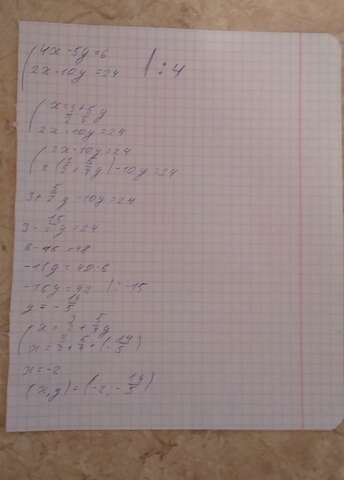 4x-5y=6 | :4
2x-10y=24
x=3/2+5/4y
2x-10y=24
2x-10y=24
2(3/2+5/4y)-10y=24
3+5/2y-10y=24
3-15/2y=24
-15y=42 |:-15
y=-14/5
x=3/2+5/4y
x=3/2+5/4*(-14/5)
x=-2
(x,y)=(-2;-14/5)